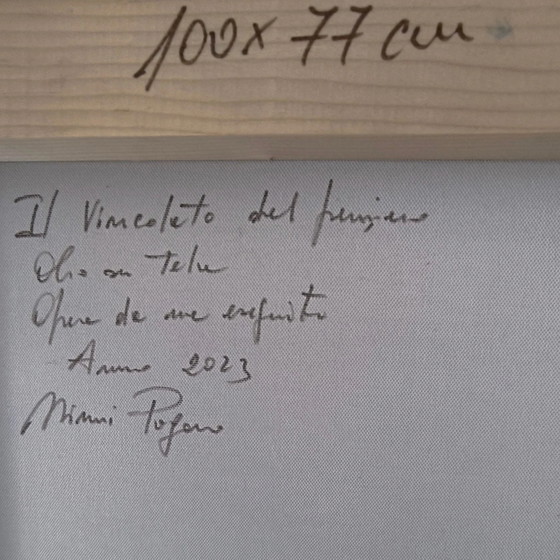 100x77 cm
Il Vincolato del pensiero
Olio su Tela
Opera da me eseguita
Anno 2023
Ninni Pagano